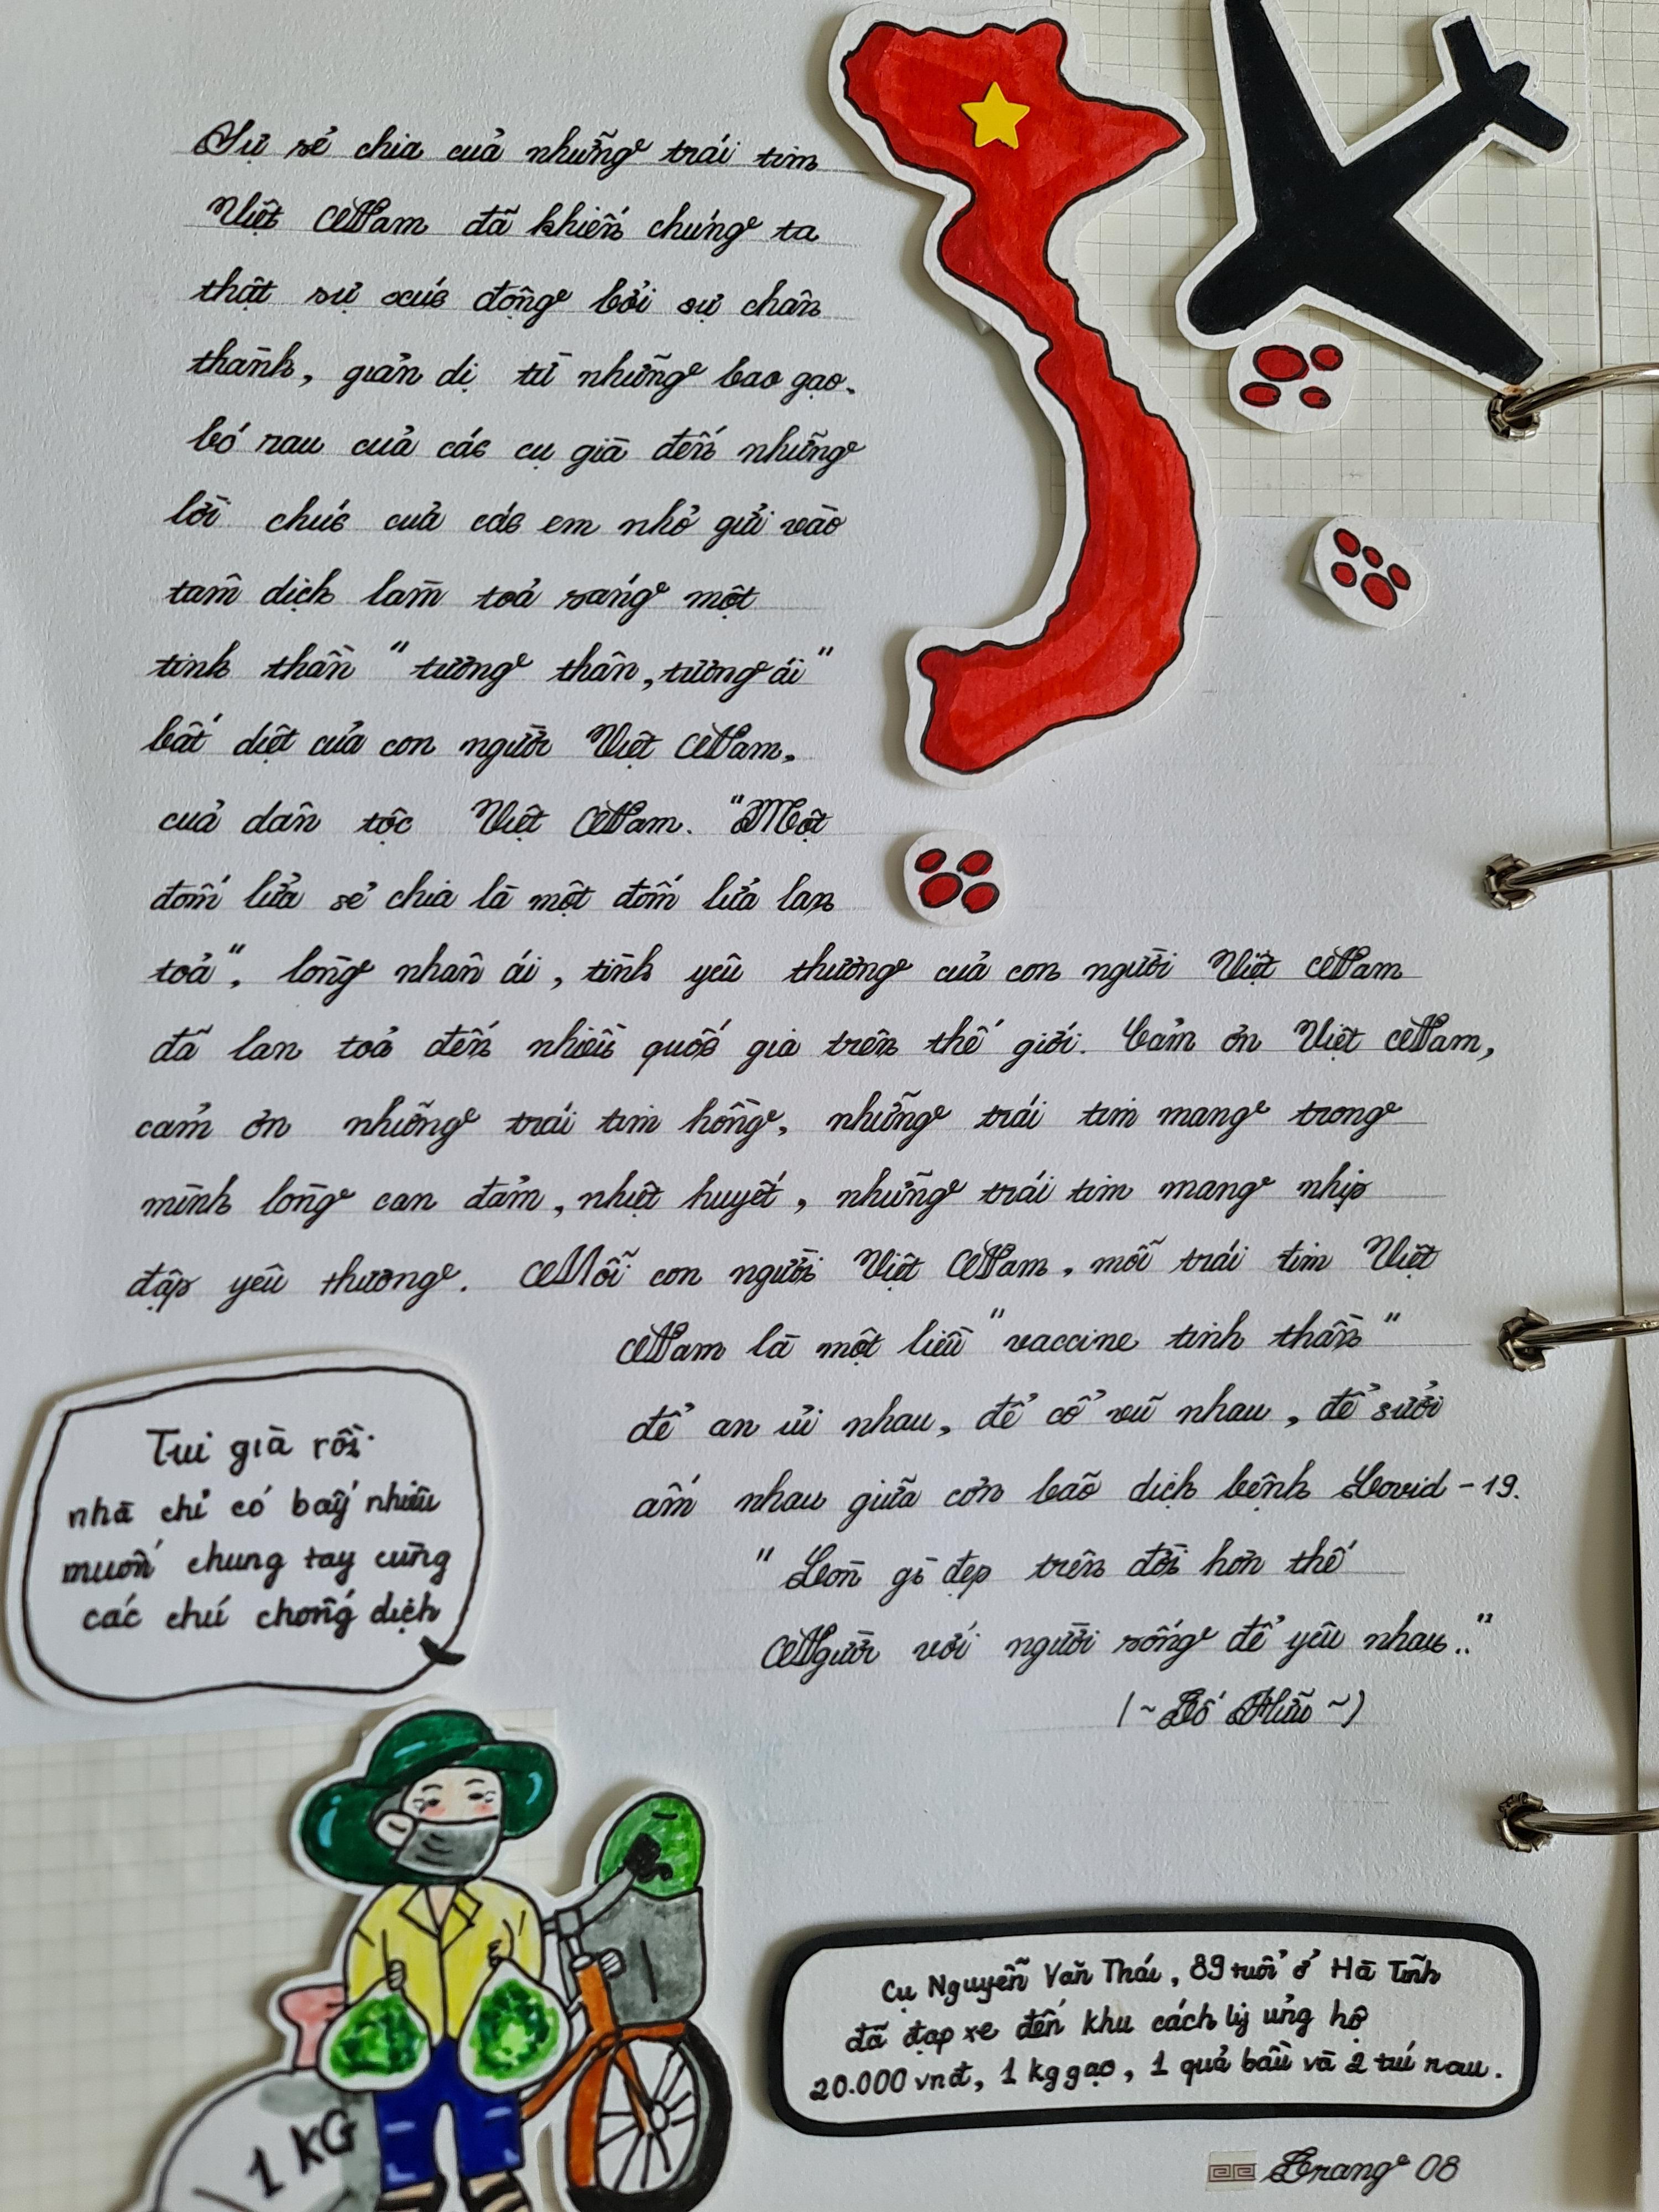 Sự sẻ chia của những trái tim
Việt Nam đã khiến chúng ta
thật sự xúc động bởi sự chân
thành, giản dị từ những bao gạo,
bó rau của các cụ già đến những
lời chúc của các em nhỏ gửi vào
tâm dịch làm toả sáng một
tinh thần "tương thân, tương ái"
bất diệt của con người Việt Nam,
của dân tộc Việt Nam. "Một
đốm lửa sẻ chia là một đốm lửa lan
toả", lòng nhân ái, tình yêu thương của con người Việt Nam
đã lan toả đến nhiều quốc gia trên thế giới. Cảm ơn Việt Nam,
cảm ơn những trái tim hồng, những trái tim mang trong
mình lòng can đảm, nhiệt huyết, những trái tim mang nhịp
đập yêu thương. Mỗi con người Việt Nam, mỗi trái tim Việt
Nam là một liều "vaccine tinh thần"
để an ủi nhau, để cổ vũ nhau, để sưởi
ấm nhau giữa cơn bão dịch bệnh Covid-19.
"Còn gì đẹp trên đời hơn thế
Người với người sống để yêu nhau.."
(~Tố Hữu~)
Tui già rồi
nhà chỉ có bấy nhiêu
muốn chung tay cùng
các chú chống dịch
1 KG
Cụ Nguyễn Văn Thái, 89 tuổi ở Hà Tĩnh
đã đạp xe đến khu cách ly ủng hộ
20.000 vnđ, 1 kg gạo, 1 quả bầu và 2 túi rau.
Trang 08